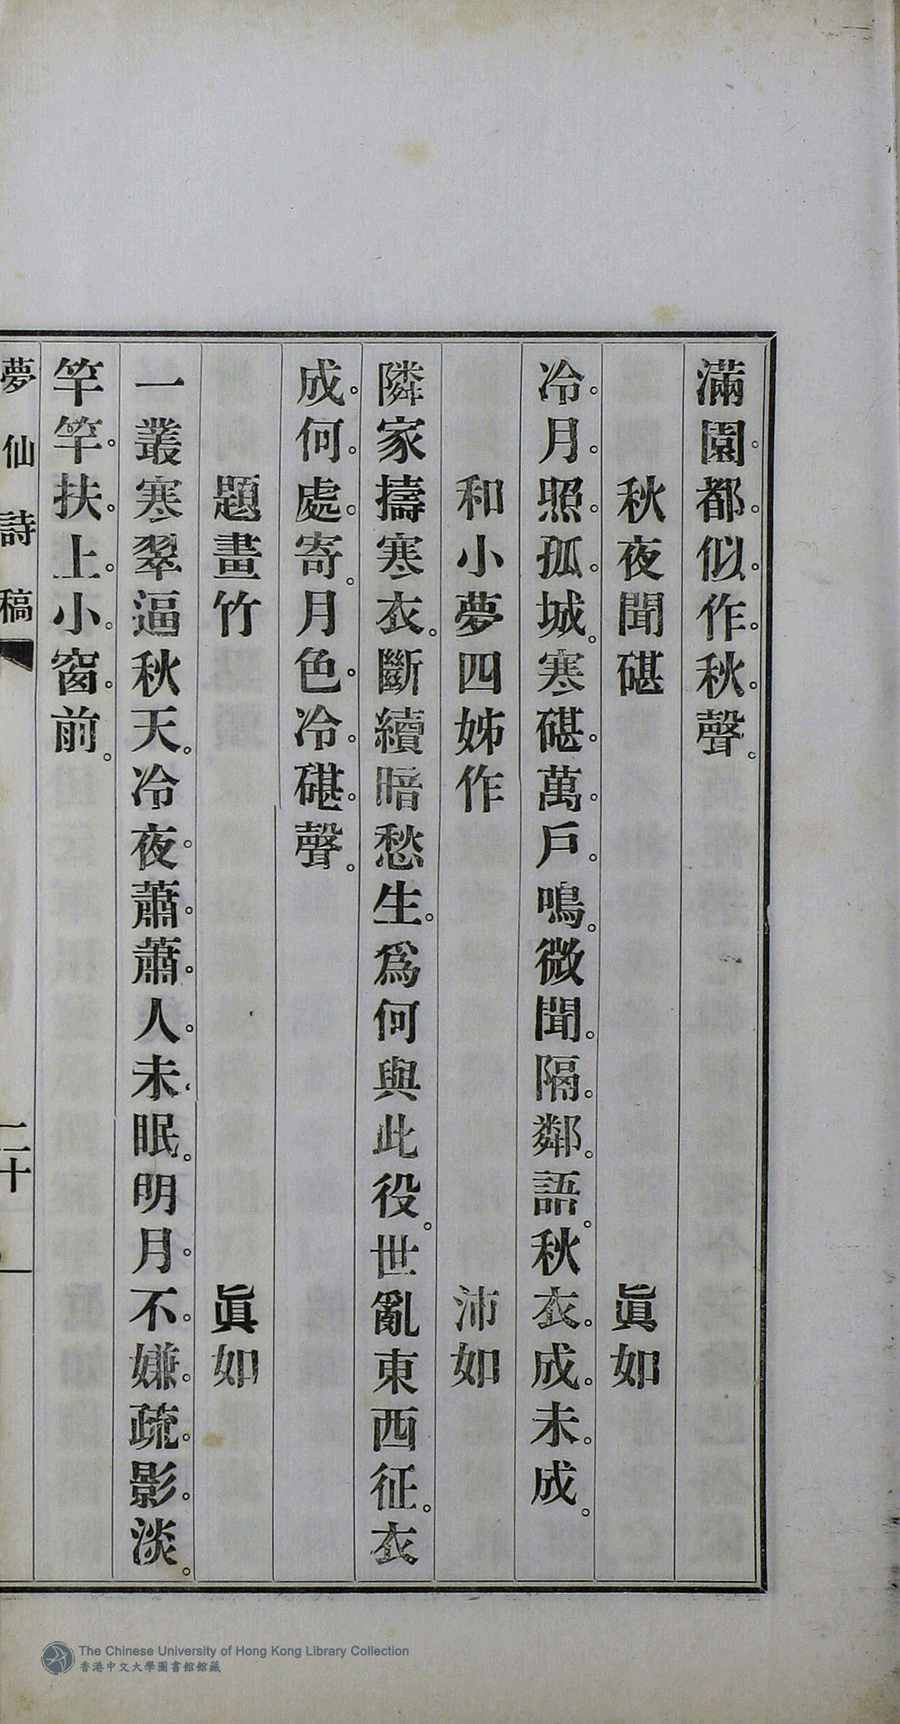 滿園。都。似。作。秋。聲。
秋夜聞碪 眞如
冷。月。照。孤。城。寒碪。萬。戶。鳴。微聞。隔。鄰。語。秋衣。成。未。成。
和小夢四姊作 沛如
隣家擣寒衣。斷續暗愁生。爲何與此役。世亂東西征。衣
成。何。處。寄。月色。冷。碪。聲。
題畫竹 眞如
一叢寒翠逼秋天。冷夜。蕭。蕭。人。未。眠。明月。不。嫌。疏。影。淡。
竿竿。扶。上。小。窗。前。
夢仙詩稿 二十
The Chinese University of Hong Kong Library Collection
香港中文大學圖書館館藏